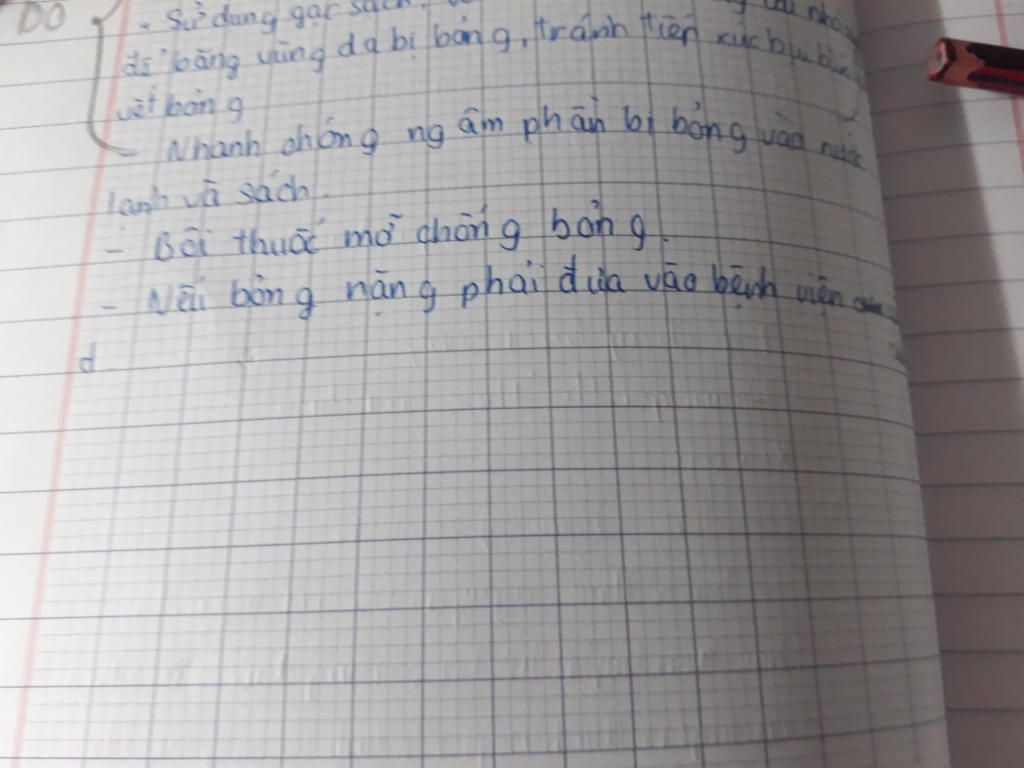 DO
- Sử dụng gạc sạch.
để băng vùng da bị bỏng, tránh tiếp xúc bụi bẩn
vết bỏng
- Nhanh chóng ngâm phần bị bỏng vào nước
lạnh và sạch.
- Bôi thuốc mỡ chống bỏng.
- Nếu bỏng nặng phải đưa vào bệnh viện
d